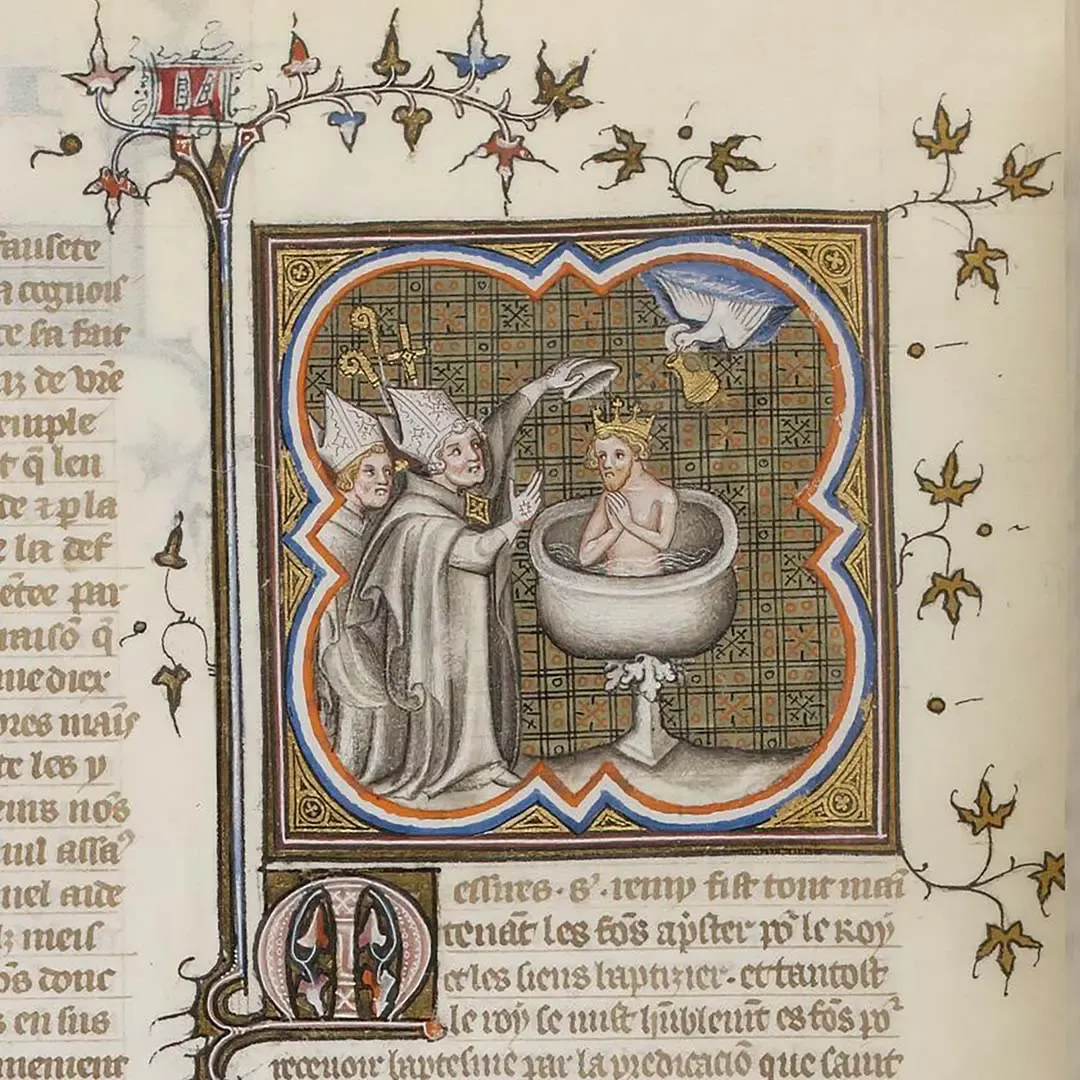 fausete
a cognois
ce la fait
az de vr̄e
temple
t q̄ len
de ⁊ p̱ la
e la def
ētee par
raisō q̄
me dier
ores mais
te les y
eurs nōs
uil assa
nel aide
z meis
ōs donc
s en sus
nement
IV
Messires. s'. remy fist tout main
tenāt les fōs ap̄ster po² le Roy
et les siens baptizier. et tantost
le roy se mist hūblemt̄ es fōs po²
recevoir baptesme par la predicaciō que saint